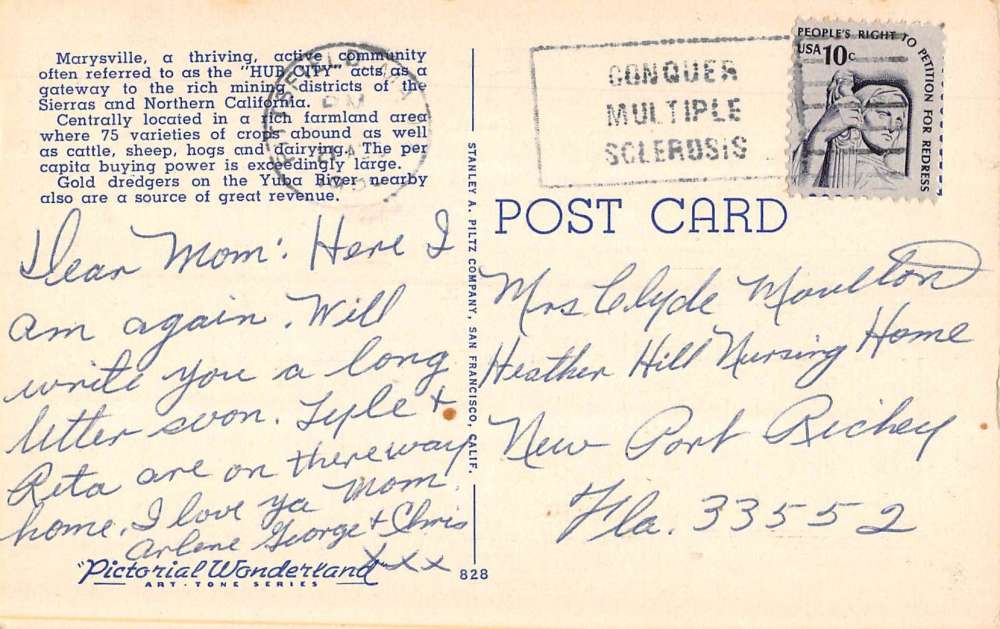 Marysville, a thriving, active community
often referred to as the "HUB CITY" acts as a
gateway to the rich mining districts of the
Sierras and Northern California.
Centrally located in a rich farmland area
where 75 varieties of crops abound as well
as cattle, sheep, hogs and dairying. The per
capita buying power is exceedinly large.
Gold dredgers on the Yuba River nearby
also are a source of great revenue.
Dear Mom: Here I
am again. Will
write you a long
letter soon. Lyle &
Rita are on thereway
home. I love ya Mom.
Arlene George & Chris
xxx
"Pictorial Wonderland
ART-TONE SERIES
828
STANLEY A. PILTZ COMPANY, SAN FRANCISCO, CALIF.
CONQUER
MULTIPLE
SCLEROSIS
PEOPLE'S RIGHT TO PETITION FOR REDRESS
USA 10c
POST CARD
Mrs Clyde Moulton
Heather Hill Nursing Home
New Port Richey
Fla. 33552